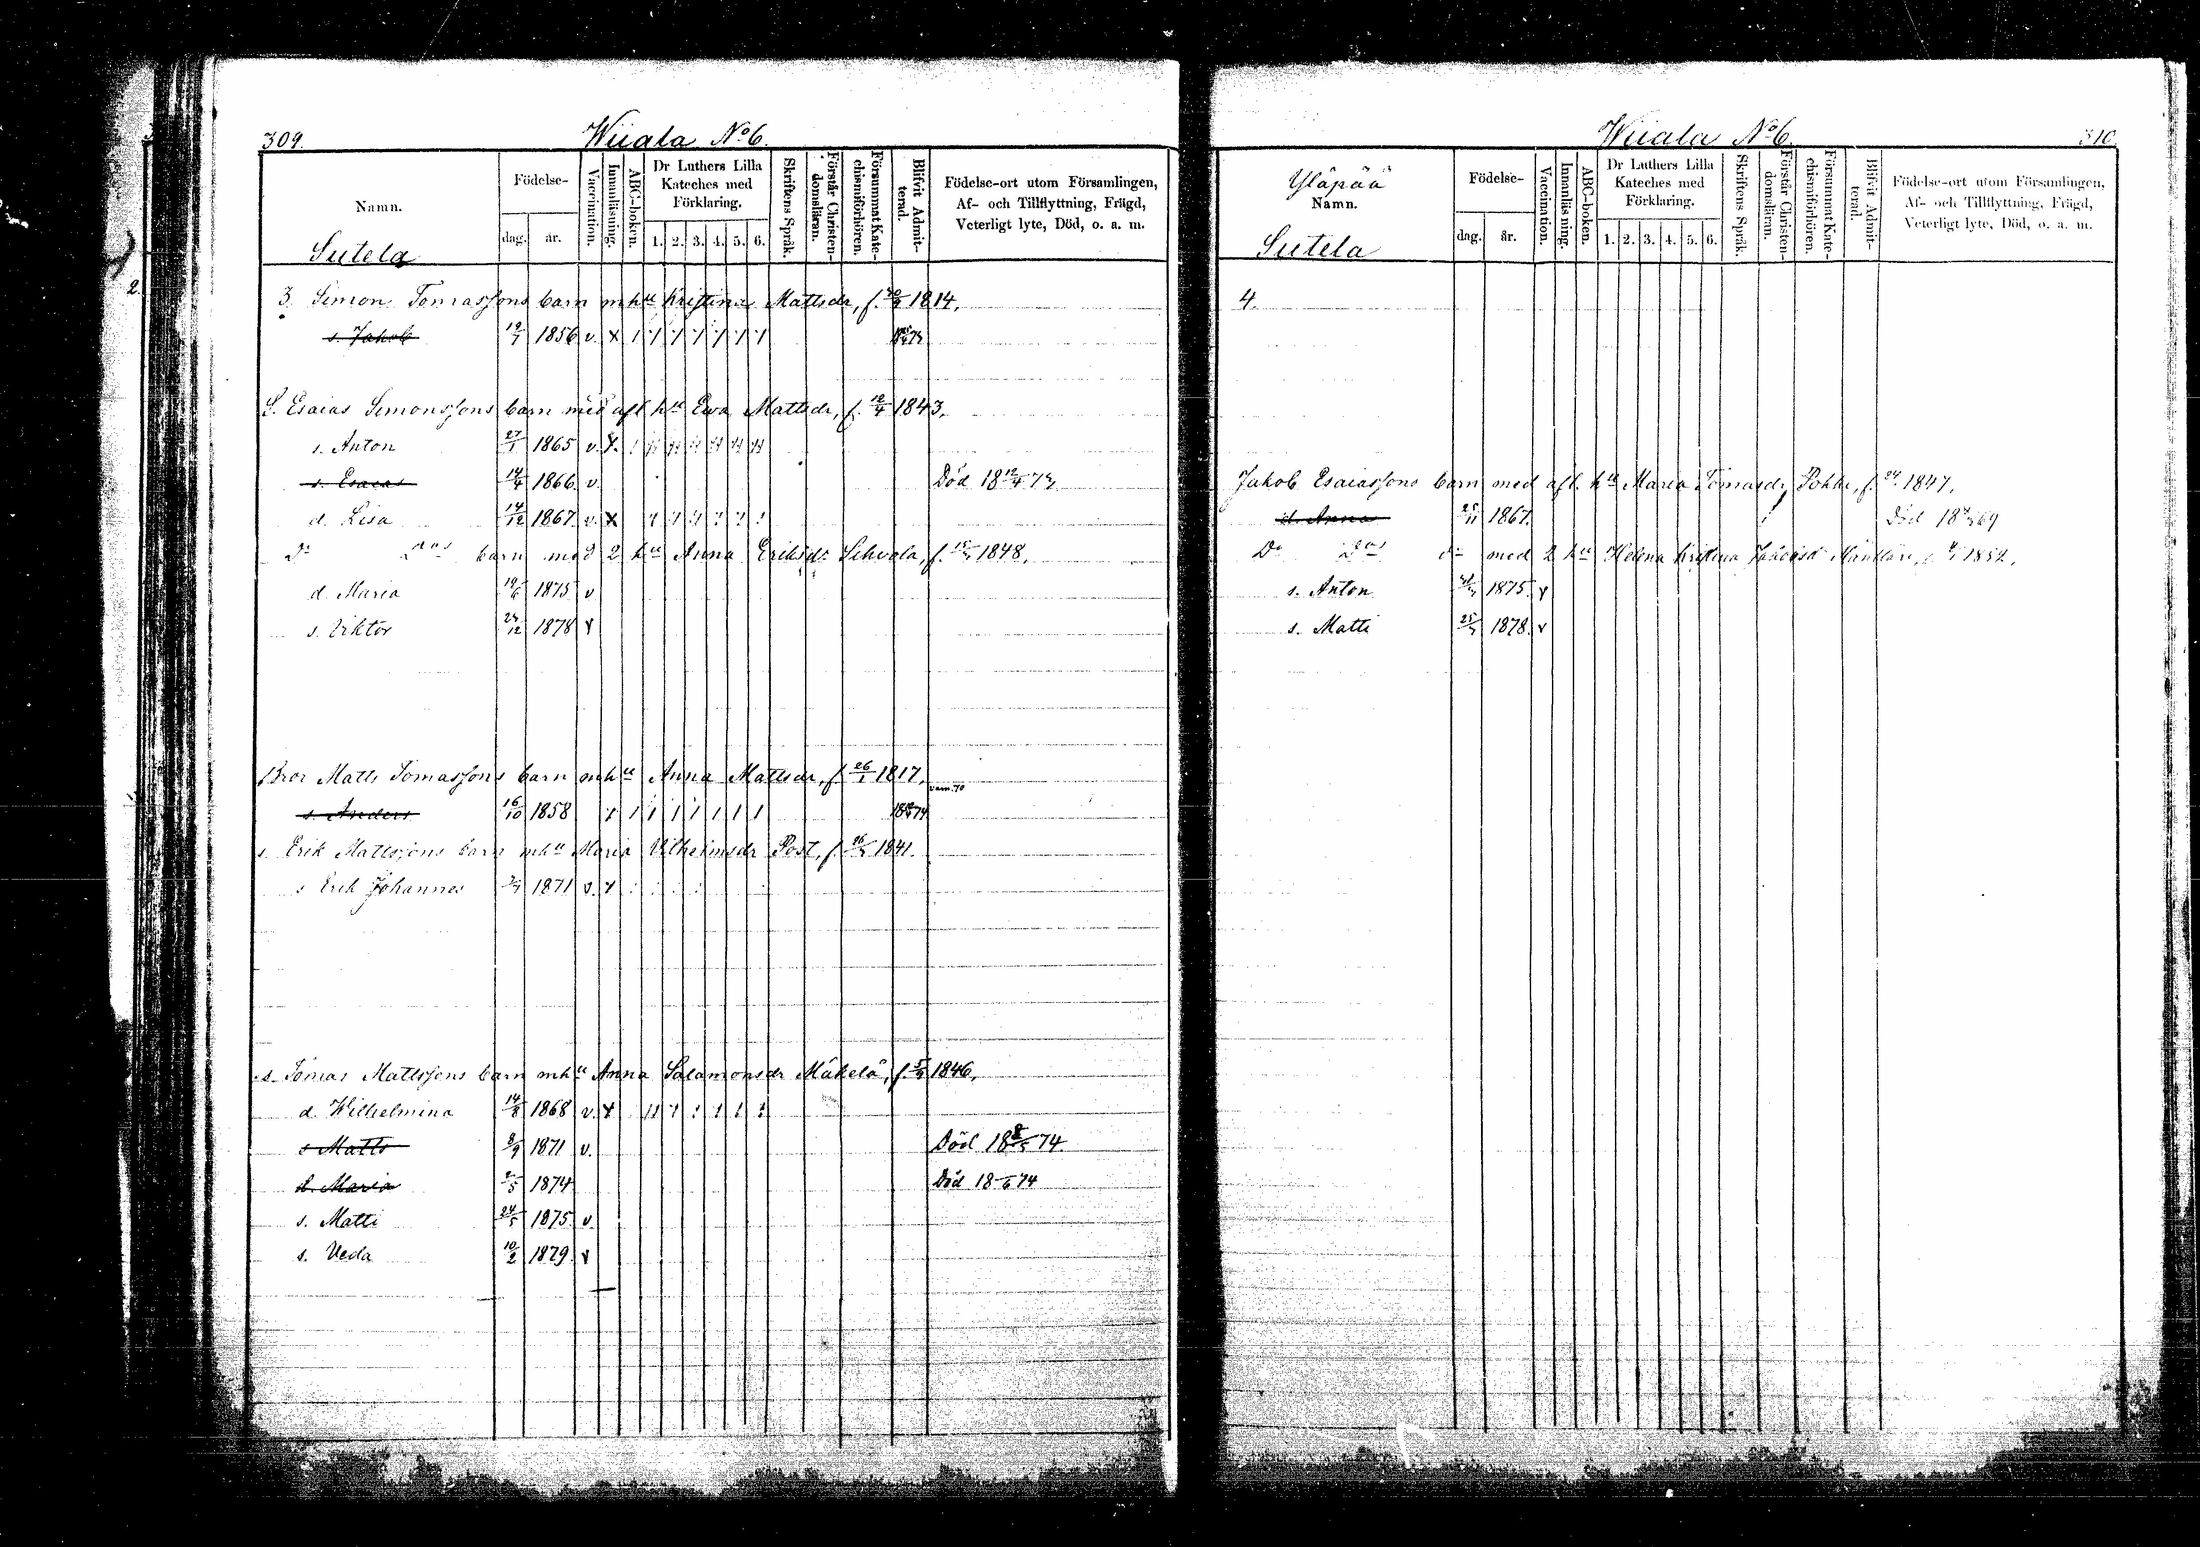 309. Wiiala No 6.
Namn.
Födelse-
dag. år.
Vaccination.
Innanläsning.
ABC-boken.
Dr Luthers Lilla Kateches med Förklaring.
1. 2. 3. 4. 5. 6.
Skriftens Språk.
Förstår Christendomsläran.
Försummat Katechismiförhören.
Blifvit Admitterad.
Födelse-ort utom Församlingen, Af- och Tillflyttning, Frägd, Veterligt lyte, Död, o. a. m.
Sutela
2.
3. Simon Tomassons barn mhu Kristina Mattsdr, f. 1814.
s. Jakob 1856 v. x
S. Esaias Simonssons barn med afl hu Ewa Mattsdr, f. 12/4 1843.
s. Anton 27/1 1865 v. x
s. Esaias 14/4 1866 v Död 18 12/4 73
d. Lisa 14/12 1867 v. x
Do Dos barn med 2 hu Anna Eriksdr Sihvola, f. 1848.
d. Maria 19/6 1875 v
s. Viktor 1878 v
Bror Matts Tomassons barn mhu Anna Mattsdr, f. 26/1 1817.
vam. 70
s. Anders 16/10 1858 x
s. Erik Mattssons barn mhu Maria Vilhelmsdr Post, f. 1841.
s Erik Johannes 1871 v. x
s. Tomas Mattssons barn mhu Anna Salamonsdr Mäkelä, f. 1846.
d. Wilhelmina 14/8 1868 v. x
s Matts 8/9 1871 v. Död 18 74.
d. Maria 1874 Död 18 74
s. Matti 24/5 1875 v
s. Veda 10/2 1879 v
Wiiala No 6. 310.
Yläpää
Namn.
Födelse-
dag. år.
Vaccination.
Innanläsning.
ABC-boken.
Dr Luthers Lilla Kateches med Förklaring.
1. 2. 3. 4. 5. 6.
Skriftens Språk.
Förstår Christendomsläran.
Försummat Katechismiförhören.
Blifvit Admitterad.
Födelse-ort utom Församlingen, Af- och Tillflyttning, Frägd, Veterligt lyte, Död, o. a. m.
Sutela
4.
Jakob Esaiassons barn med afl. hu Maria Tomasdr Pokki, f. 1847.
d. Anna 25/11 1867. Död 18 69
Do Dos do med 2 hu Helena Kristina Jakobsd Mänttäri, f. 1852.
s. Anton 1875. v
s. Matti 1878. v